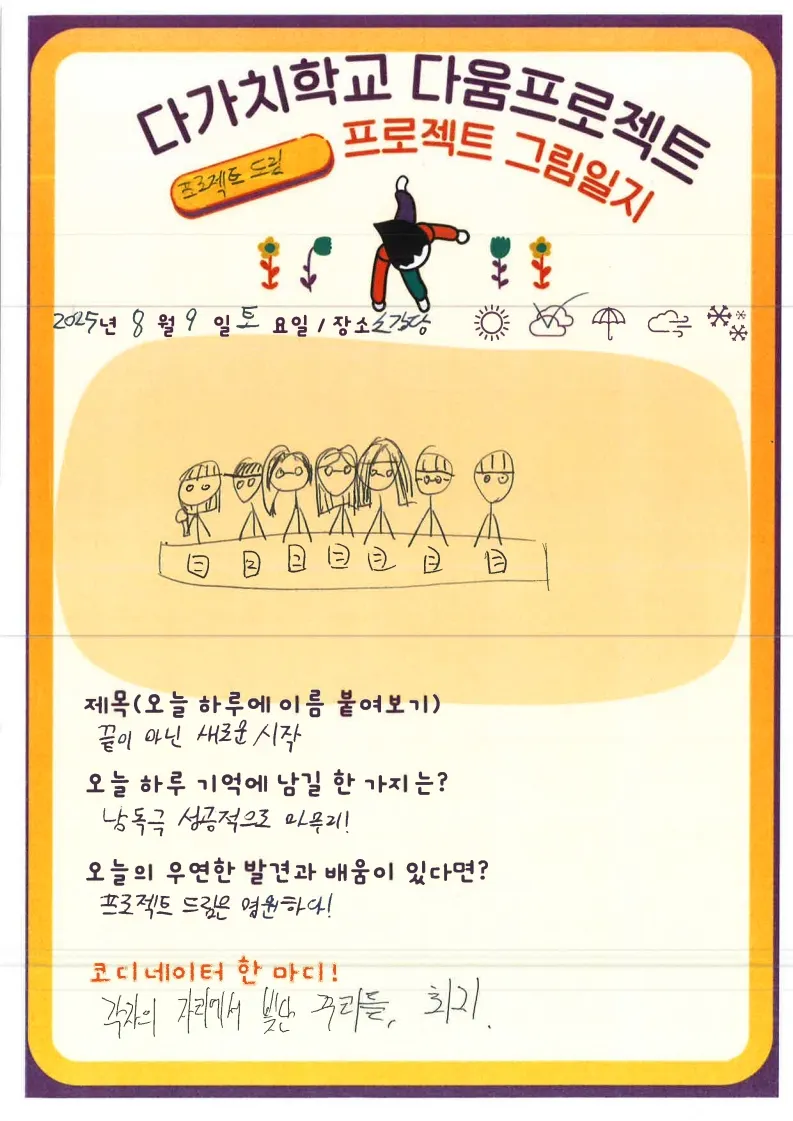 다가치학교 다움프로젝트
프로젝트 그림일지
프로젝트 드림
2025년 8월 9일 토요일 / 장소
제목(오늘 하루에 이름 붙여보기)
끝이 아닌 새로운 시작
오늘 하루 기억에 남길 한 가지는?
낭독극 성공적으로 마무리!
오늘의 우연한 발견과 배움이 있다면?
프로젝트 드림은 영원하다!
코디네이터 한 마디!
각자의 자리에서 빛난